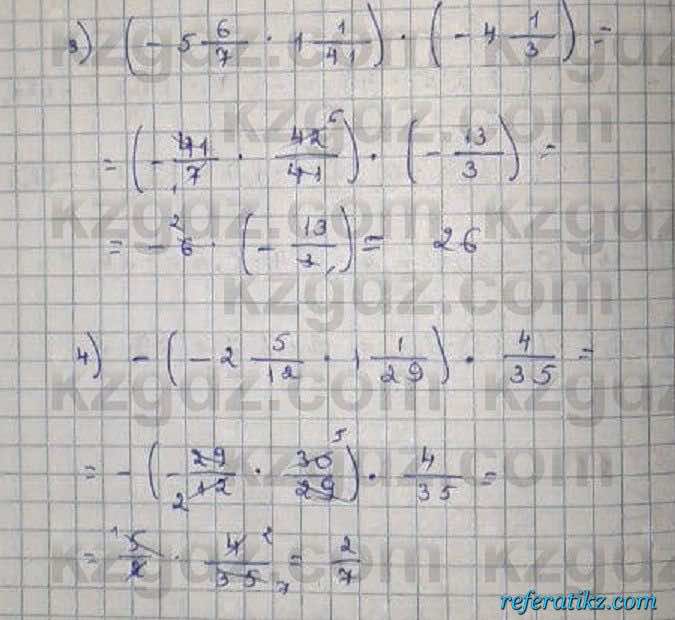 3) (- 5 6/7 · 1 1/41) · (- 4 1/3) =
= (- 41/7 · 42/41) · (- 13/3) =
= - 6 · (- 13/3) = 26
4) - (- 2 5/12 · 1 1/29) · 4/35 =
= - (- 29/12 · 30/29) · 4/35 =
= 5/2 · 4/35 = 2/7
kzgdz.com
referatikz.com